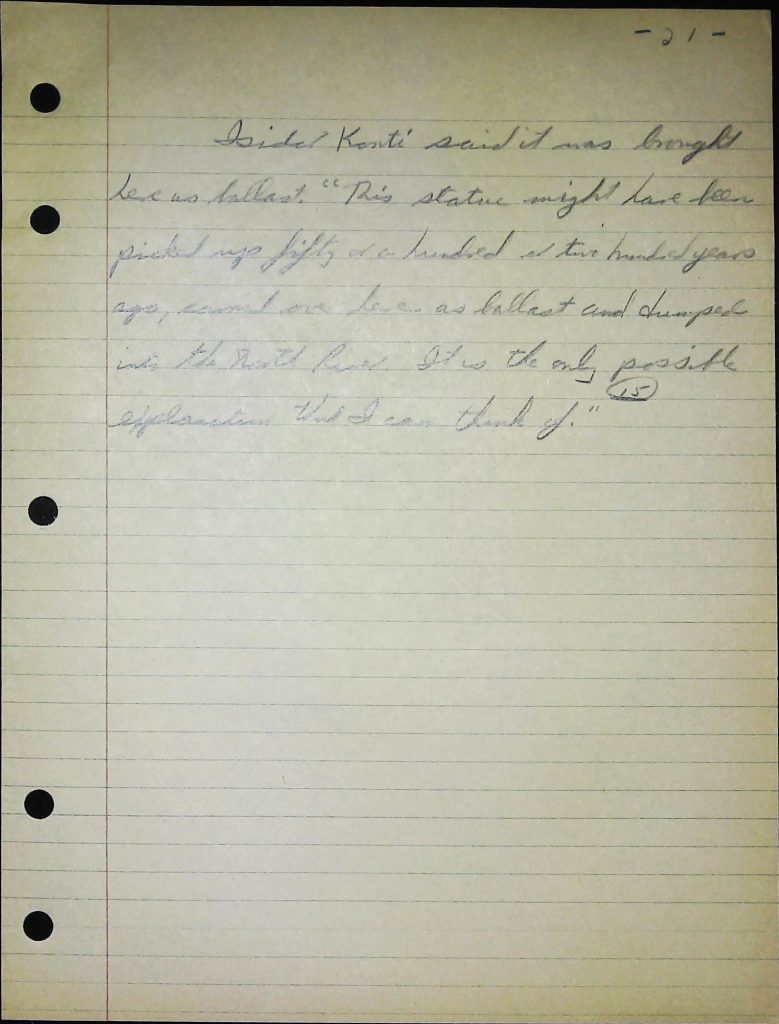 - 21 -
Isidor Konti said it was brought
here as ballast. "This statue might have been
picked up fifty or a hundred or two hundred years
ago, carried over here as ballast and dumped
into the North River. It is the only possible
(15)
explanation that I can think of."